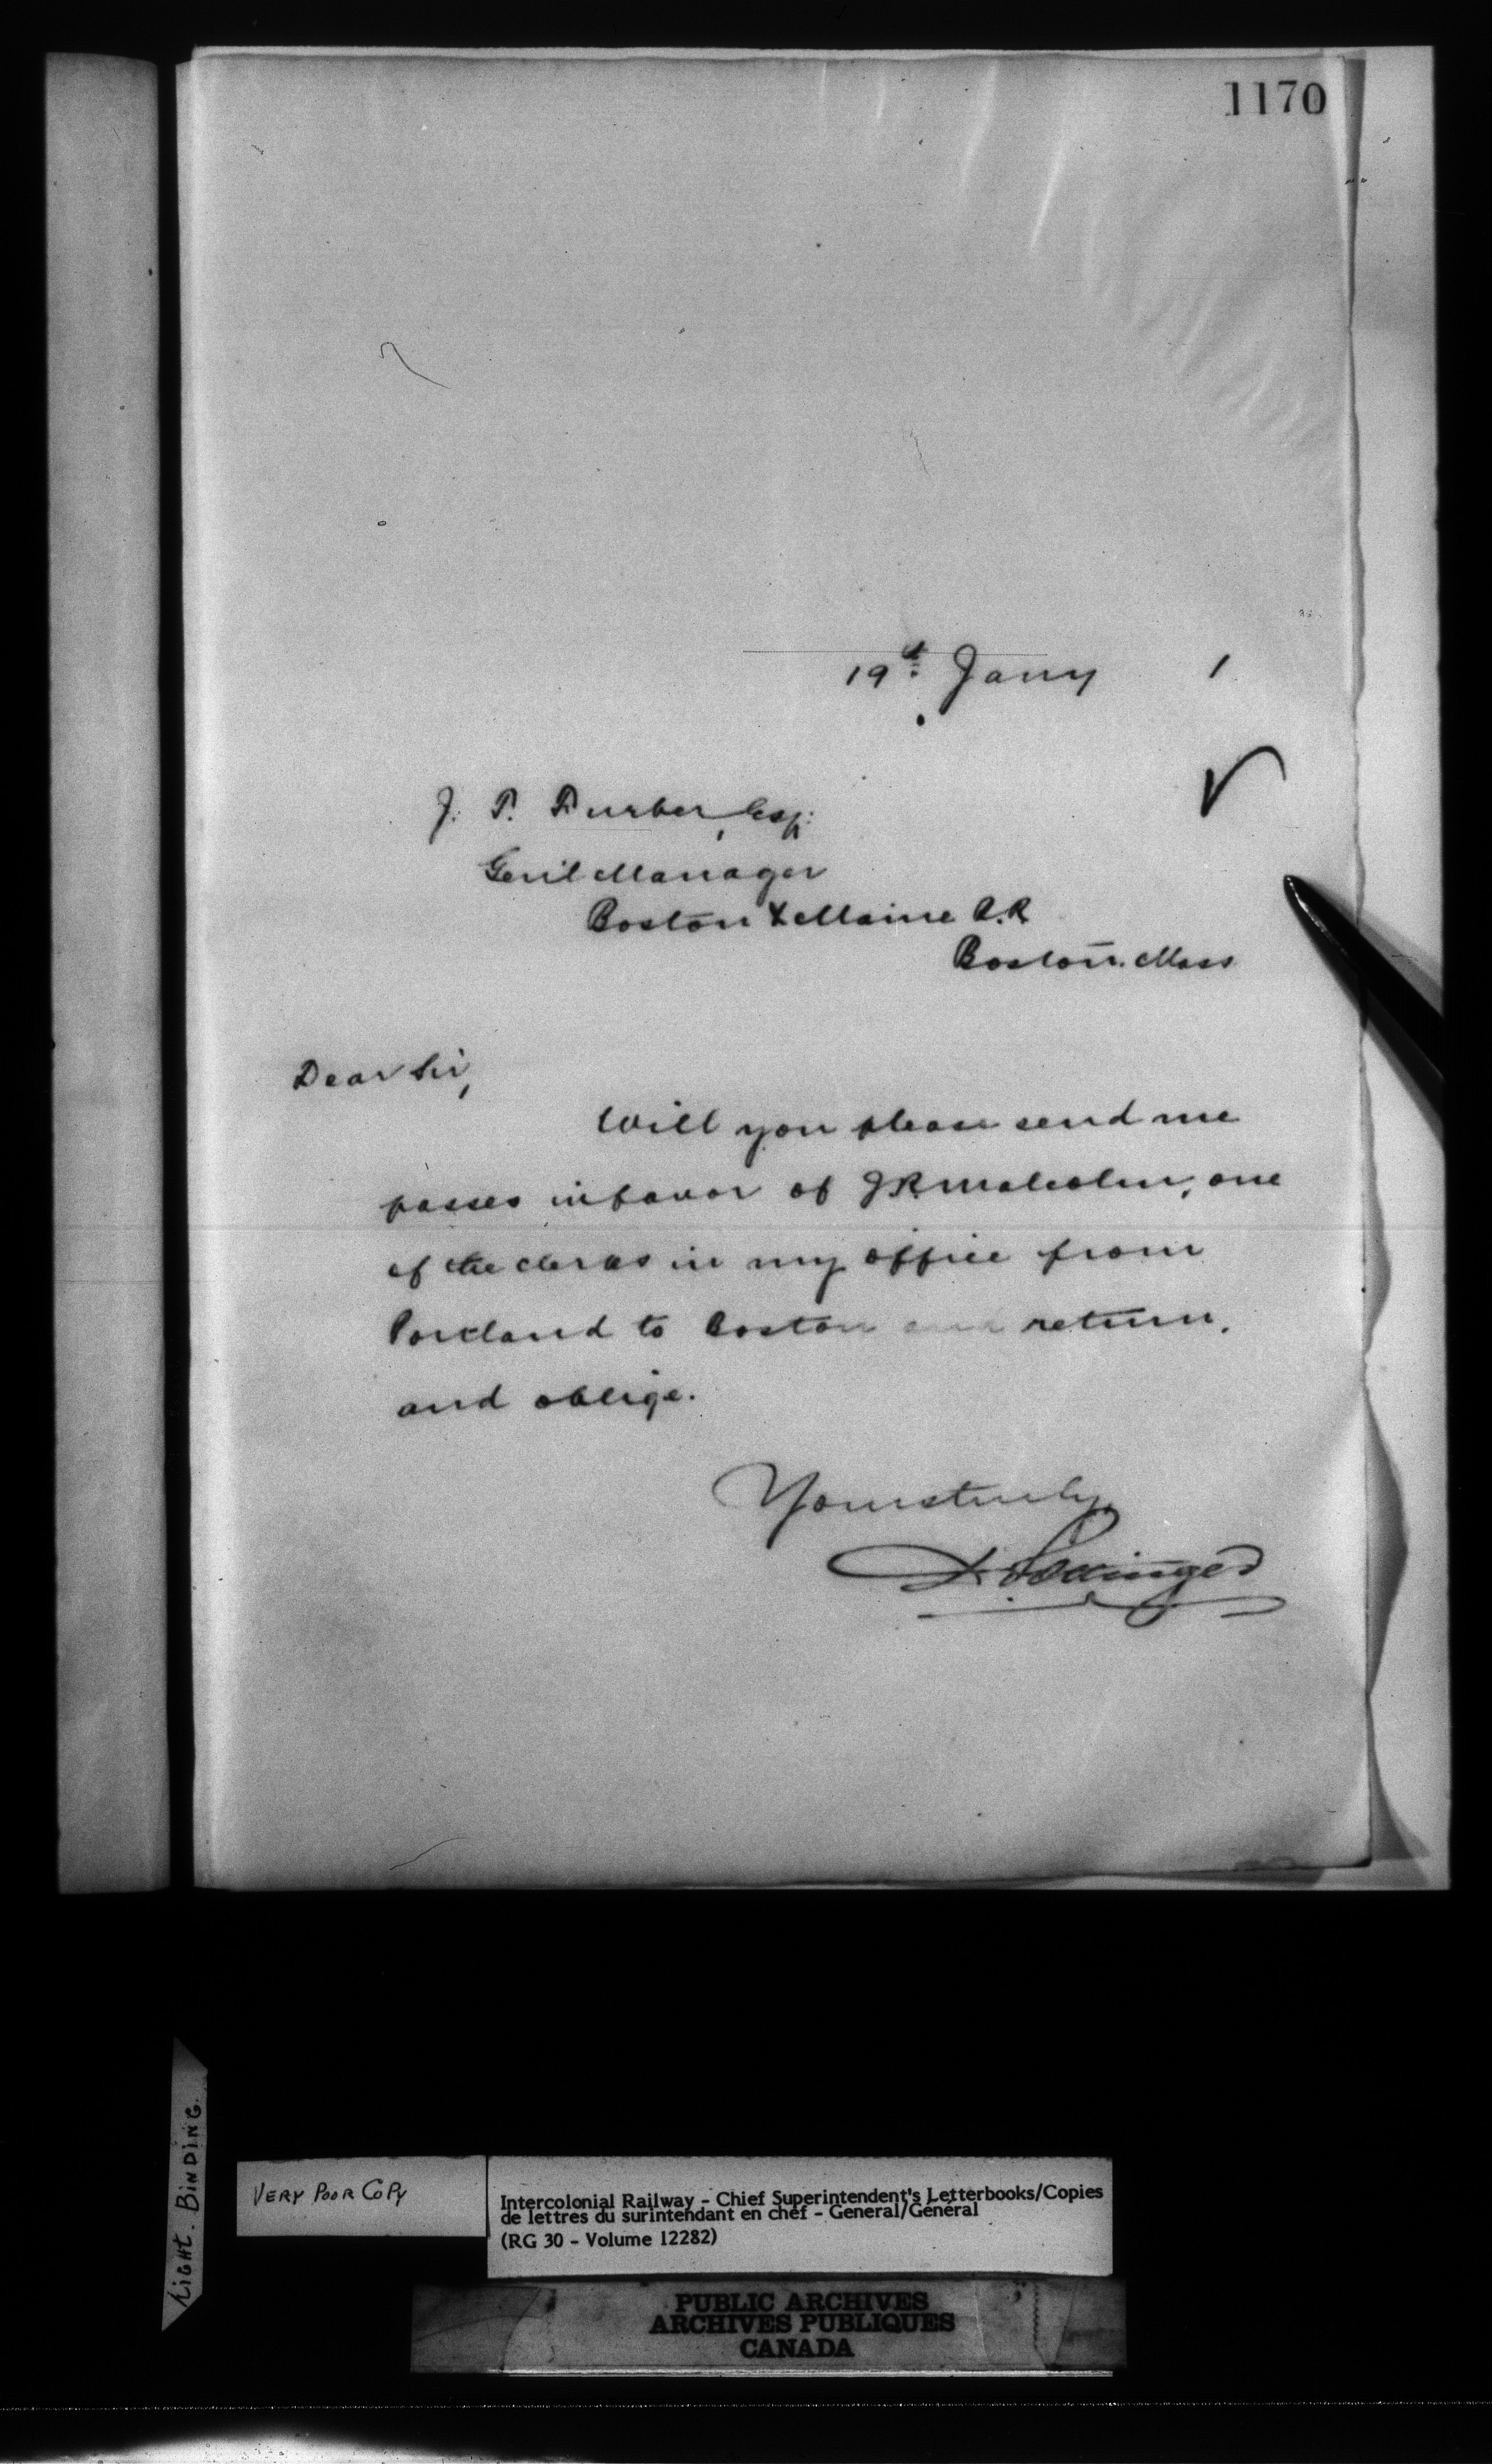 1170
19th Jany 1
J. T. Furber, Esq:
Genl Manager
Boston & Maine R.R
Boston. Mass
Dear Sir,
Will you please send me
passes in favor of J R Malcolm, one
of the clerks in my office from
Portland to Boston and return.
and oblige.
Yours truly,
D. Pottinger
LIGHT. BINDING.
VERY POOR COPY
Intercolonial Railway - Chief Superintendent's Letterbooks/Copies
de lettres du surintendant en chef - General/Général
(RG 30 - Volume 12282)
PUBLIC ARCHIVES
ARCHIVES PUBLIQUES
CANADA